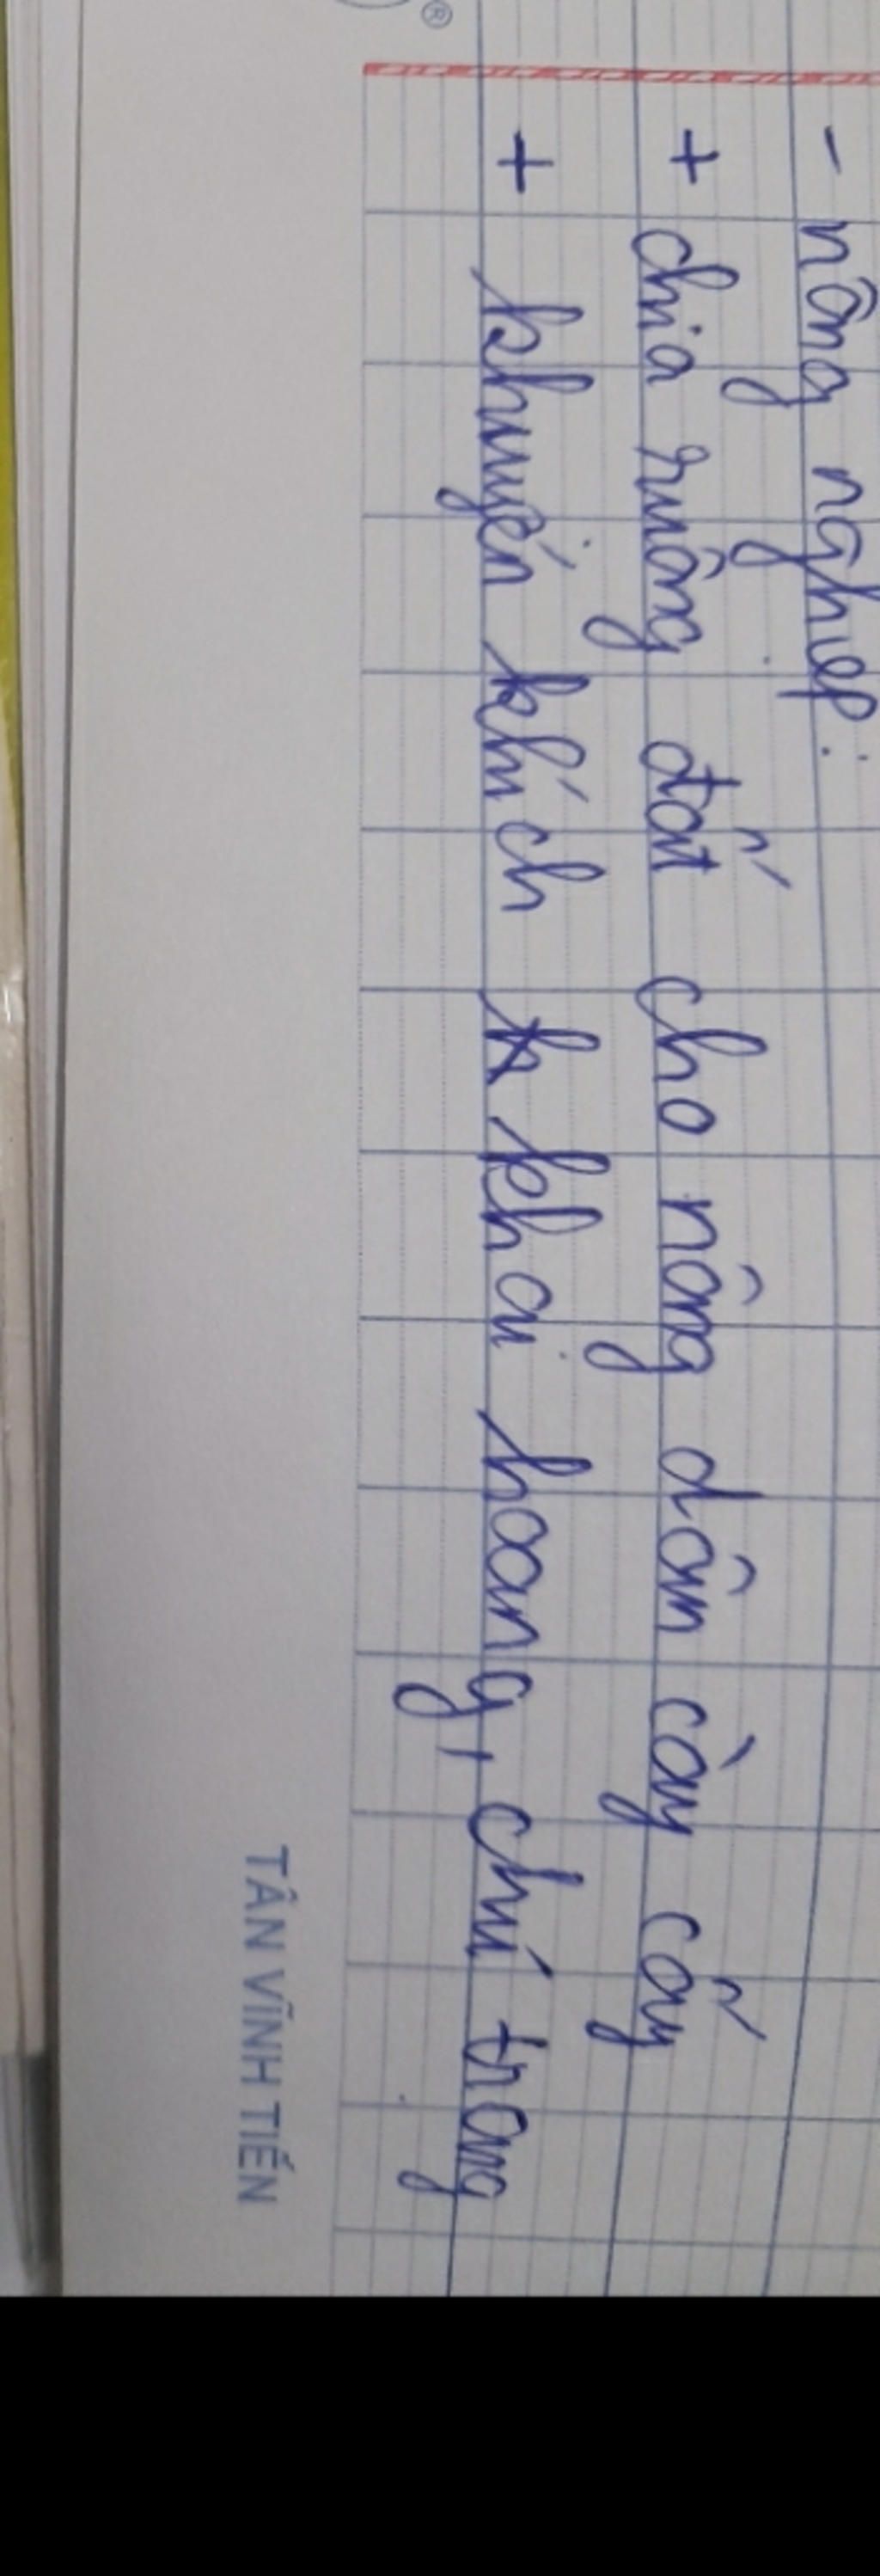 - nông nghiệp:
+ chia ruộng đất cho nông dân cày cấy
+ khuyến khích khai hoang, chú trọng
TÂN VĨNH TIẾN
®